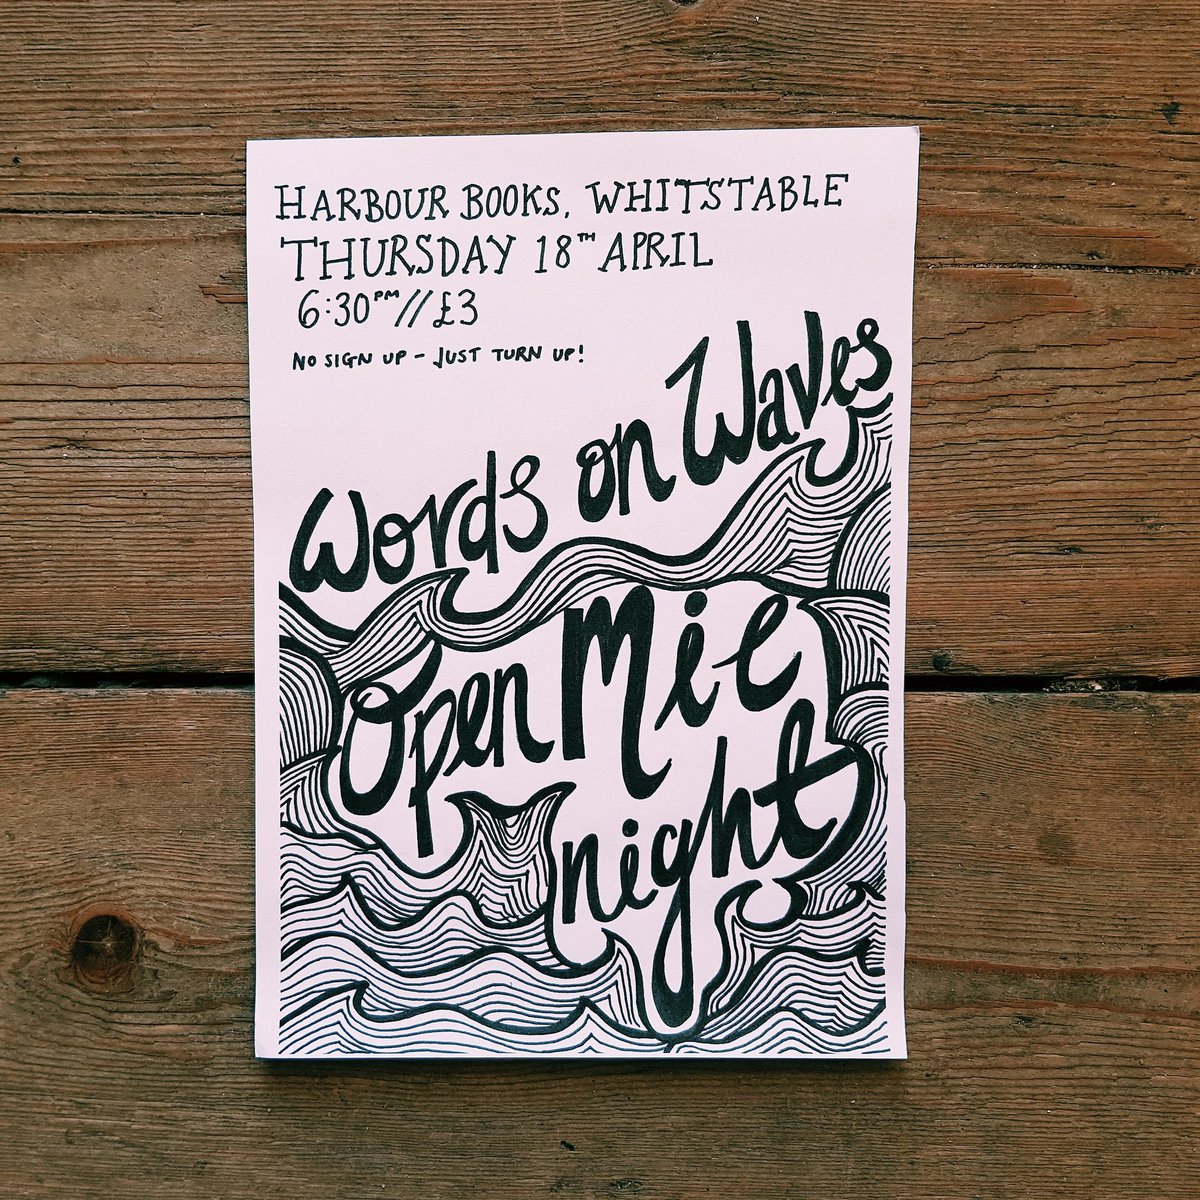 HARBOUR BOOKS, WHITSTABLE
THURSDAY 18TH APRIL
6:30PM // £3
NO SIGN UP - JUST TURN UP!
Words on Waves
Open Mic
night